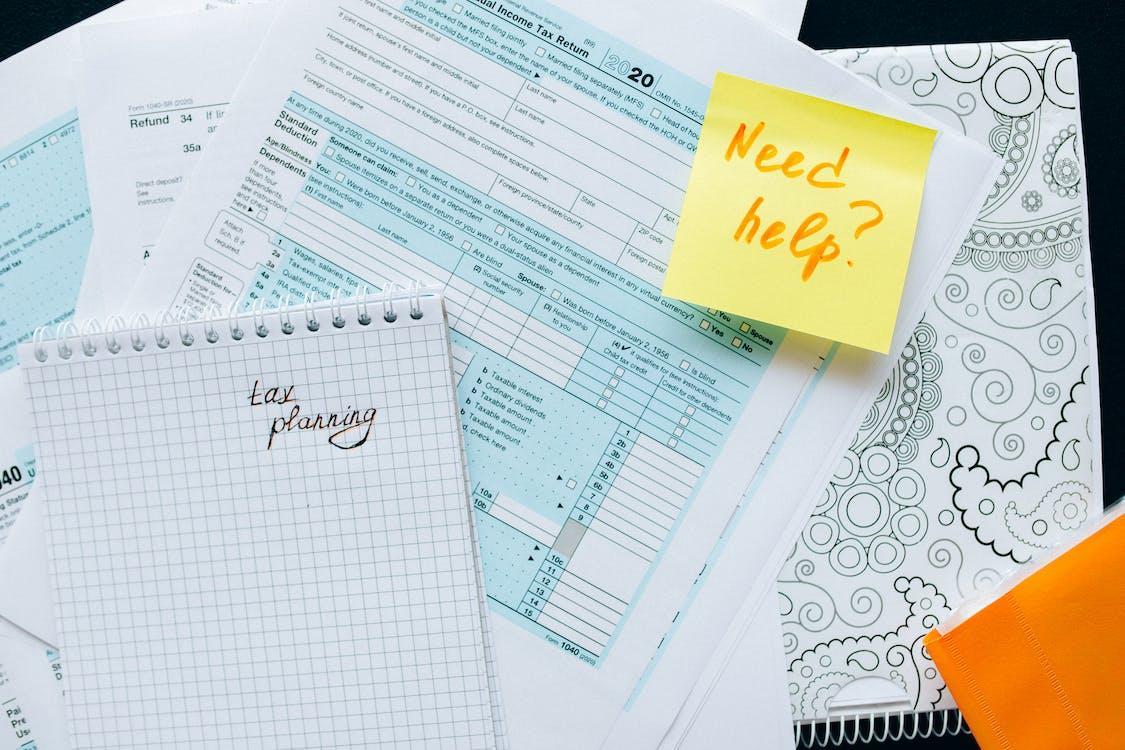 Internal Revenue Service
ual Income Tax Return (99) 2020 OMB No. 1545-0
Married filing jointly Married filing separately (MFS) Head of hou
If you checked the MFS box, enter the name of your spouse. If you checked the HOH or QW
person is a child but not your dependent ▶
Your first name and middle initial Last name
If joint return, spouse's first name and middle initial Last name
Home address (number and street). If you have a P.O. box, see instructions. Apt.
City, town, or post office. If you have a foreign address, also complete spaces below. State ZIP code
Foreign country name Foreign province/state/county Foreign postal
At any time during 2020, did you receive, sell, send, exchange, or otherwise acquire any financial interest in any virtual currency? Yes No
Standard Deduction
Someone can claim: You as a dependent Your spouse as a dependent
Spouse itemizes on a separate return or you were a dual-status alien
Age/Blindness You: Were born before January 2, 1956 Are blind Spouse: Was born before January 2, 1956 Is blind
Dependents (see instructions):
(1) First name Last name
(2) Social security number
(3) Relationship to you
(4) ✔ if qualifies for (see instructions):
Child tax credit Credit for other dependents
If more than four dependents, see instructions and check here ▶
Attach Sch. B if required.
1 Wages, salaries, tips
2a Tax-exempt inter
3a Qualified divid
4a IRA dist
Standard Deduction for—
b Taxable interest
b Ordinary dividends
b Taxable amount
b Taxable amount
d, check here
1
2b
3b
4b
5b
6b
7
8
9
10a
10b
10c
11
12
13
14
15
Form 1040 (2020)
You
Spouse
Need
help?
tax
planning
Form 1040-SR (2020)
Refund 34 If li
35a
Direct deposit?
See instructions.
8814
4972